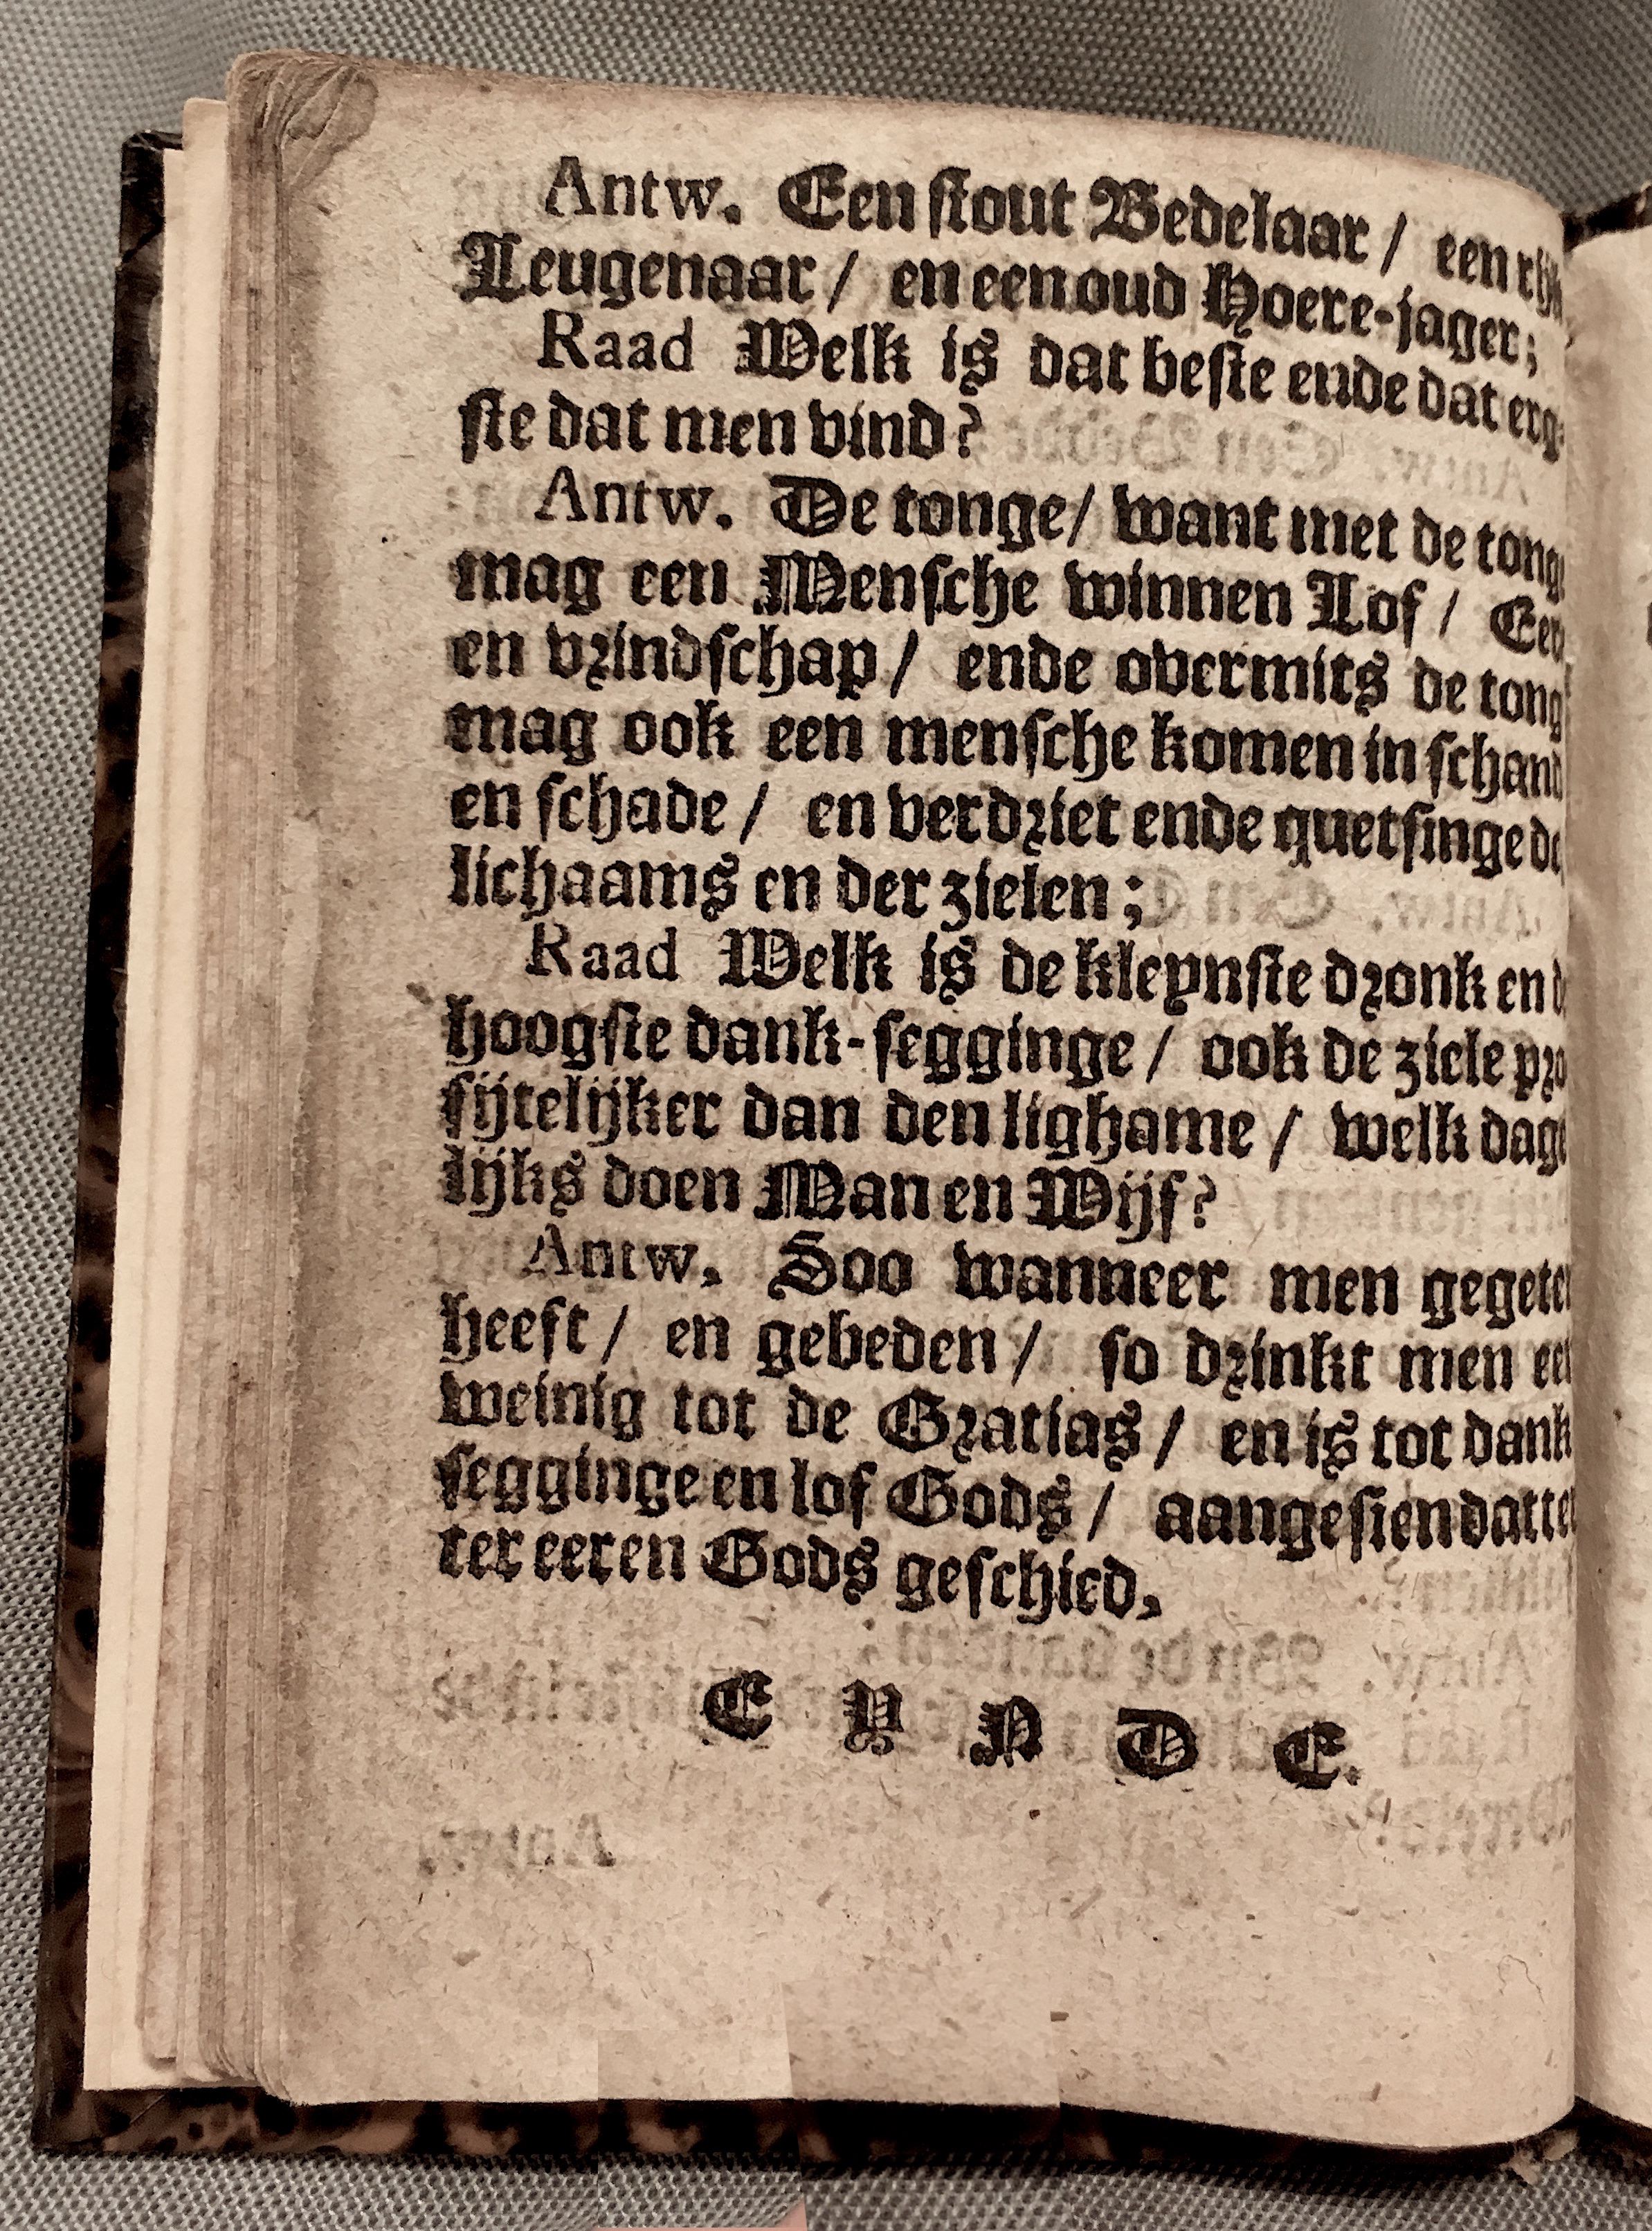 Antw. Een stout Bedelaar / een rijk
Leugenaar / en een oud Hoere-jager;
Raad Welk is dat beste ende dat erg-
ste dat men vind?
Antw. De tonge / want met de tong
mag een Mensche winnen Lof / Eer
en vrindschap / ende overmits de tong
mag ook een mensche komen in schand
en schade / en verdriet ende quetsinge de
lichaams en der zielen;
Raad Welk is de kleynste dronk en d
hoogste dank-segginge / ook de ziele pro
fijtelijker dan den lighame / welk dage
lijks doen Man en Wijf?
Antw. Soo wanneer men gegeten
heeft / en gebeden / so drinkt men een
weinig tot de Gratias / en is tot dank
segginge en lof Gods / aangesien datter
ter eeren Gods geschied,
E Y N D E.